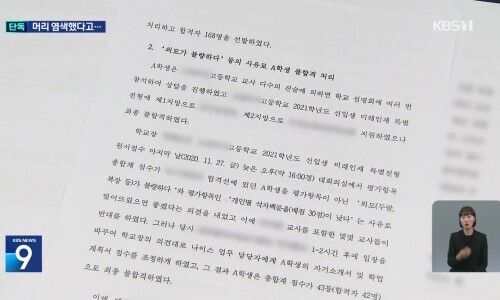 단독 머리 염색했다고…
KBS 1
처리하고 합격자 168명을 선발하였다.
2. '외모가 불량하다' 등의 사유로 A학생 불합격 처리
A학생은 고등학교 교사 다수의 진술에 의하면 학교 설명회에 여러 번
참석하여 상담을 진행하였고 고등학교 2021학년도 신입생 미래인재 특별
전형에 제1지망으로 제2지망으로 지원하였으나
최종 불합격하였다.
학교장 고등학교 2021학년도 신입생 미래인재 특별전형
원서접수 마지막 날(2020. 11. 27. 금) 늦은 오후(약 16:00경) 대회의실에서 평가항목
총합계 점수가 합격선에 있던 A학생을 평가항목이 아닌 '외모(두발,
복장 등)가 불량하다'와 평가항목인 '개인별 석차백분율(배점 30점)이 낮다'는 사유로
떨어뜨렸으면 좋겠다는 의견을 내었고 이에 교사를 포함한 몇몇 교사들이
반대를 하였다. 그러나 당시 1~2시간 후에 입장을
바꾸어 학교장의 의견대로 나이스 업무 담당자에게 A학생의 자기소개서 및 학업
계획서 점수를 조정하게 하였고, 그 결과 A학생은 총합계 점수가 43등(합격자 42명)
으로 최종 불합격하였다.
KBS NEWS
9